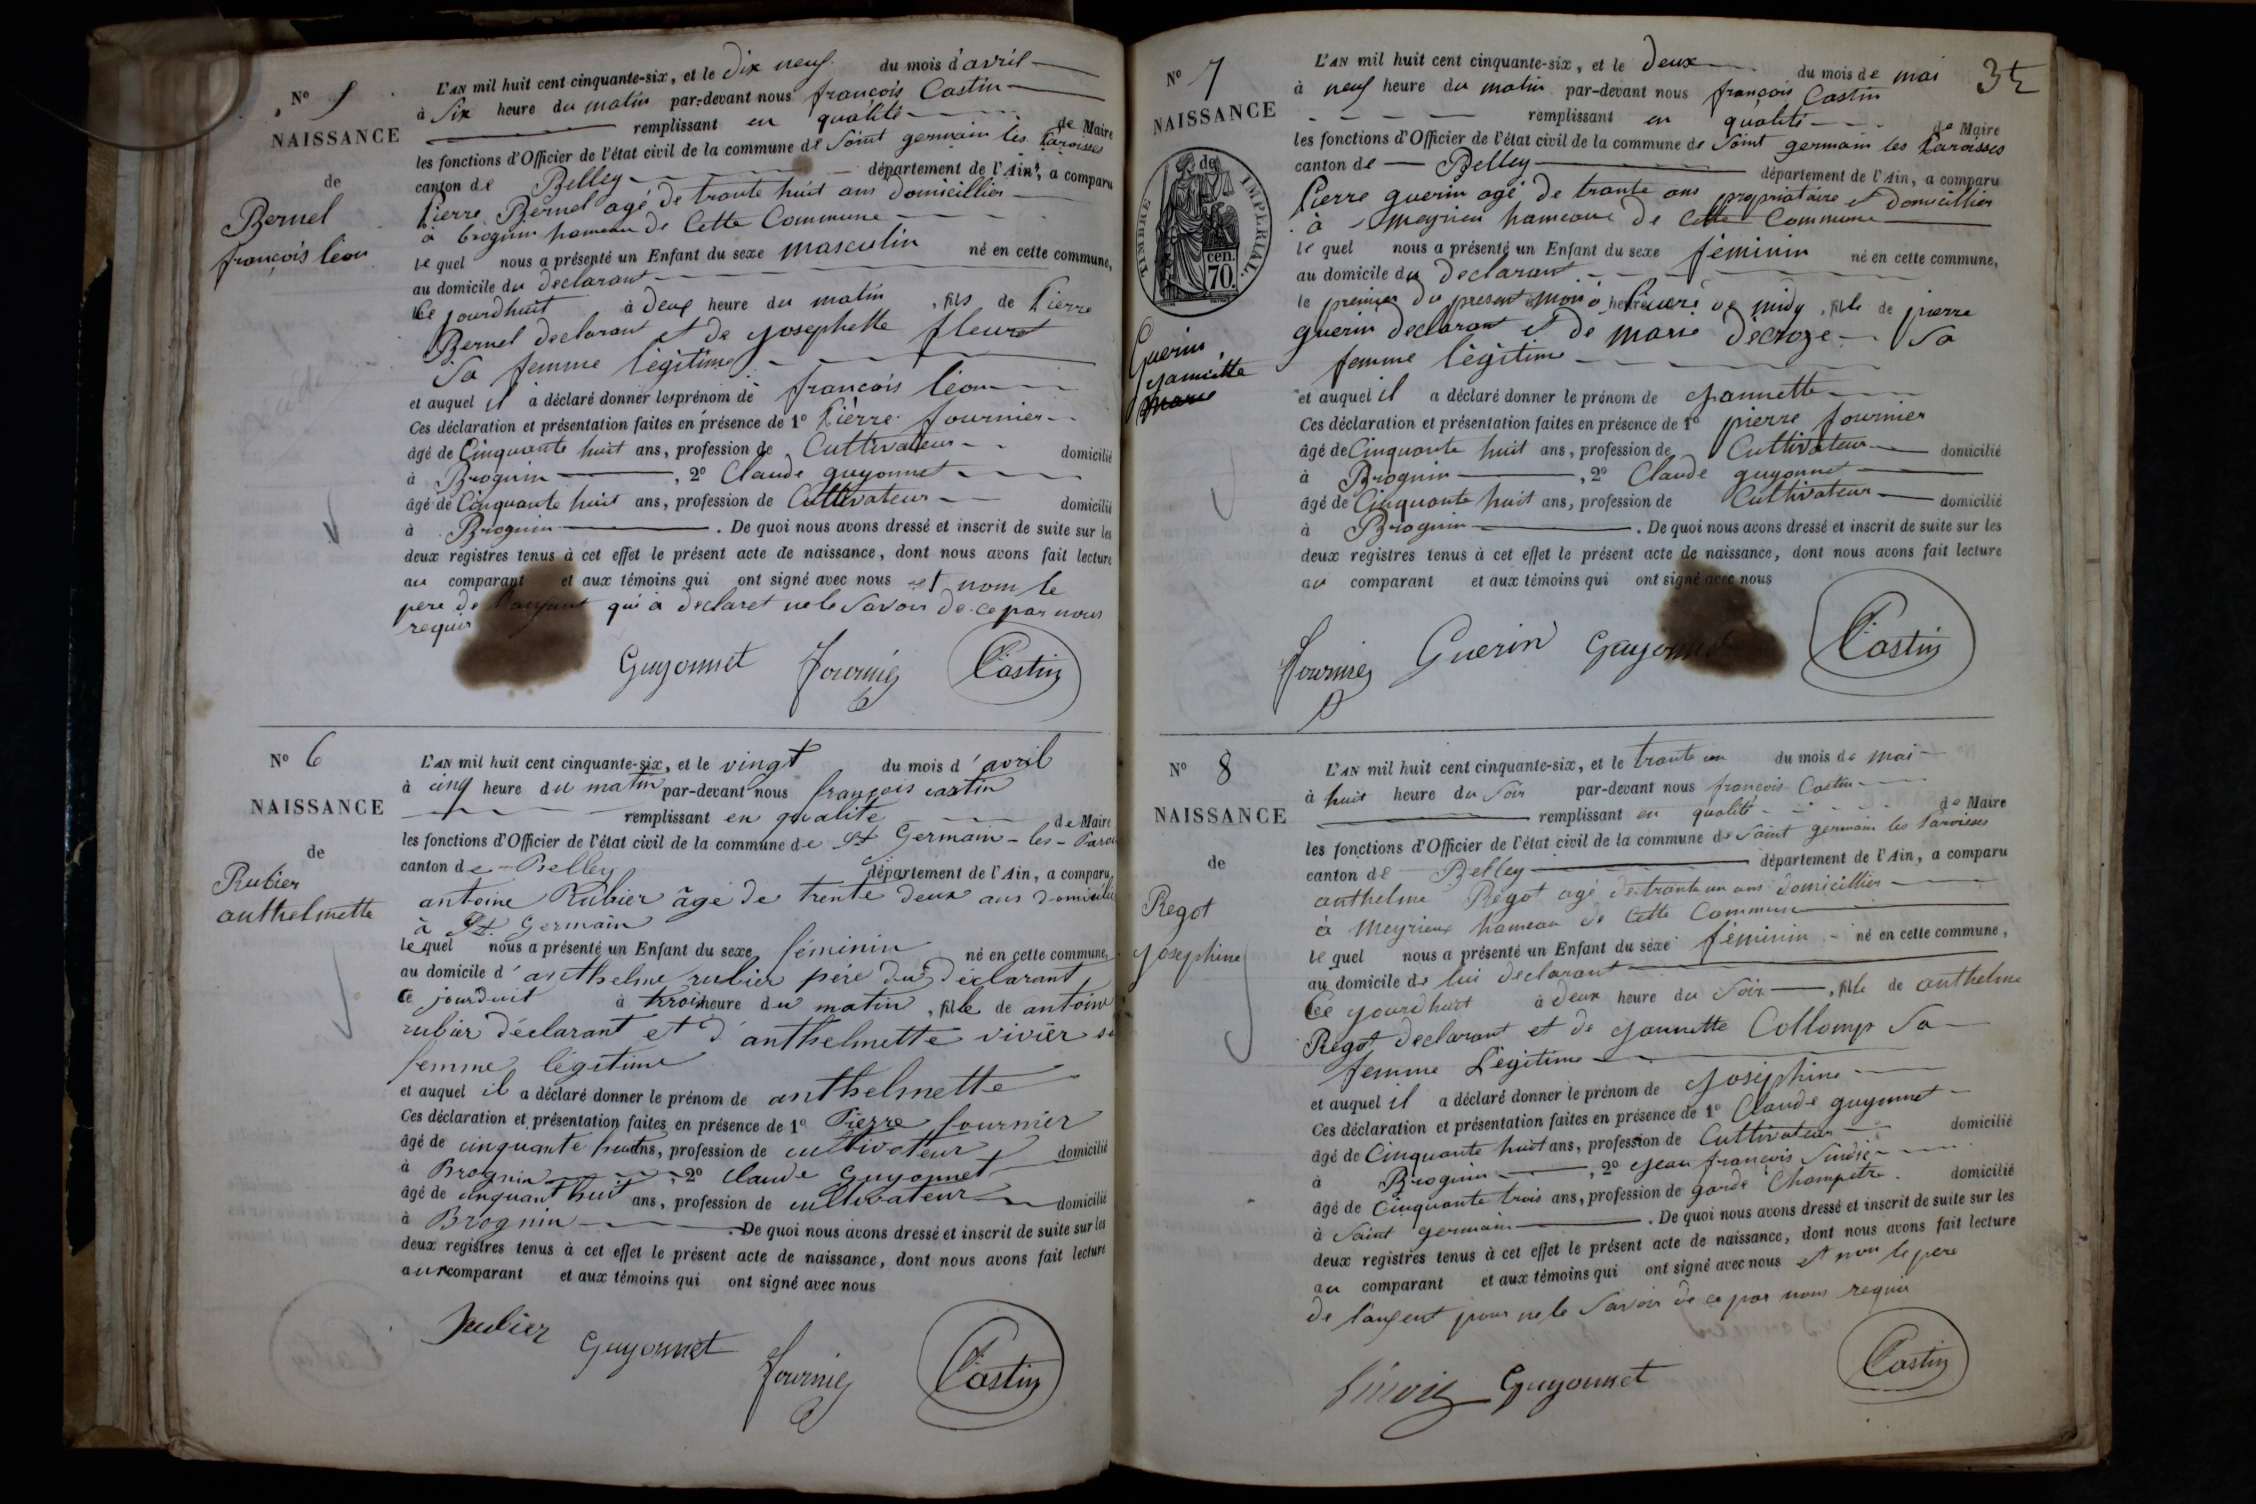 N° 5
NAISSANCE
de
Bernel
françois léon
L'AN mil huit cent cinquante-six, et le dix neuf du mois d'avril
à six heure du matin par-devant nous françois Castin
remplissant en qualité de Maire
les fonctions d'Officier de l'état civil de la commune de Saint germain les Paroisses
canton de Belley département de l'Ain, a comparu
Pierre Bernel agé de trante huit ans domicillier
à brognin hameau de Cette Commune
le quel nous a présenté un Enfant du sexe masculin né en cette commune,
au domicile du declarant
Ce jourdhuit à deux heure du matin, fils de Pierre
Bernel declarant et de josephette fleuret
Sa femme légitime
et auquel il a déclaré donner les prénom de françois léon
Ces déclaration et présentation faites en présence de 1° Pierre fournier
âgé de Cinquante huit ans, profession de Cultivateur domicilié
à Brognin, 2° Claude guyonnet
âgé de Cinquante huit ans, profession de Cultivateur domicilié
à Brognin. De quoi nous avons dressé et inscrit de suite sur les
deux registres tenus à cet effet le présent acte de naissance, dont nous avons fait lecture
au comparant et aux témoins qui ont signé avec nous et nom le
pere de l'anfant qui a declaret ne le Savoir de ce par nous
requis
Guyonnet Fournier Castin
N° 6
NAISSANCE
de
Rubier
anthelmette
L'AN mil huit cent cinquante-six, et le vingt du mois d'avril
à cinq heure du matin par-devant nous françois castin
remplissant en qualité de Maire
les fonctions d'Officier de l'état civil de la commune de St Germain-les-Paroi
canton de Belley département de l'Ain, a comparu
antoine Rubier âgé de trente deux ans domicilié
à St. Germain
le quel nous a présenté un Enfant du sexe féminin né en cette commune,
au domicile d'anthelme rubier père du déclarant
Ce jourduit à trois heure du matin, fille de antoine
rubier déclarant et d'anthelmette vivier sa
femme légitime
et auquel il a déclaré donner le prénom de anthelmette
Ces déclaration et présentation faites en présence de 1° Pierre fournier
âgé de cinquante huit ans, profession de cultivateur domicilié
à Brognin, 2° Claude Guyonnet
âgé de cinquant huit ans, profession de cultivateur domicilié
à Brognin. De quoi nous avons dressé et inscrit de suite sur les
deux registres tenus à cet effet le présent acte de naissance, dont nous avons fait lecture
au comparant et aux témoins qui ont signé avec nous
Rubier Guyonnet Fournier Castin
35
N° 7
NAISSANCE
TIMBRE IMPERIAL.
de
70 cen.
Guerin
jannette
marie
L'AN mil huit cent cinquante-six, et le deux du mois de mai
à neuf heure du matin par-devant nous françois Castin
remplissant en qualité de Maire
les fonctions d'Officier de l'état civil de la commune de Saint germain les Paroisses
canton de Belley département de l'Ain, a comparu
Pierre guerin agé de trante ans propriataire et domicillier
à Meyrieu hameaux de Cette Commune
le quel nous a présenté un Enfant du sexe féminin né en cette commune,
au domicile du declarant
le premier du present mois à heure de midy, fille de pierre
guerin declarant et de marie décroze Sa
femme légitime
et auquel il a déclaré donner le prénom de jannette
Ces déclaration et présentation faites en présence de 1° pierre fournier
âgé de Cinquante huit ans, profession de Cultivateur domicilié
à Brognin, 2° Claude guyonnet
âgé de Cinquante huit ans, profession de Cultivateur domicilié
à Brognin. De quoi nous avons dressé et inscrit de suite sur les
deux registres tenus à cet effet le présent acte de naissance, dont nous avons fait lecture
au comparant et aux témoins qui ont signé avec nous
Fournier Guerin Guyonnet Castin
N° 8
NAISSANCE
de
Regot
josephine
L'AN mil huit cent cinquante-six, et le trante un du mois de mai
à huit heure du Soir par-devant nous françois Castin
remplissant en qualité de Maire
les fonctions d'Officier de l'état civil de la commune de Saint germain les Paroisses
canton de Belley département de l'Ain, a comparu
anthelme Regot agé de trante un ans domicillier
à Meyrieux hameau de Cette Commune
le quel nous a présenté un Enfant du sexe féminin né en cette commune,
au domicile de lui declarant
Ce jourdhuit à deux heure du Soir, fille de anthelme
Regot declarant et de jannette Collomp Sa
femme Légitime
et auquel il a déclaré donner le prénom de joséphine
Ces déclaration et présentation faites en présence de 1° Claude guyonnet
âgé de Cinquante huit ans, profession de Cultivateur domicilié
à Brognin, 2° jean françois
âgé de Cinquante trois ans, profession de garde Champetre domicilié
à Saint germain. De quoi nous avons dressé et inscrit de suite sur les
deux registres tenus à cet effet le présent acte de naissance, dont nous avons fait lecture
au comparant et aux témoins qui ont signé avec nous et non le pere
de l'anfent pour ne le Savoir de ce par nous requis
Guyonnet Castin